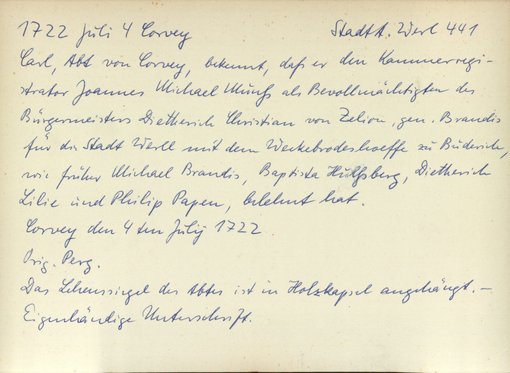 1722 Juli 4 Corvey StadtA. Werl 441
Carl, Abt von Corvey, bekennt, daß er den Kammerregi-
strator Joannes Michael als Bevollmächtigten des
Bürgermeisters Dietherich Christian von Zelion, gen. Brandis
für die Stadt Werll mit dem Weckebrodeshoeffe zu Büderich,
wie früher Michael Brandis, Baptista Hülfsberg, Dietherich
Lilie und Philip Papen, belehnt hat.
Corvey den 4 ten Julij 1722.
Orig. Perg.
Das Lehenssiegel des Abtes ist in Holzkapsel angehängt. –
Eigenhändige Unterschrift.